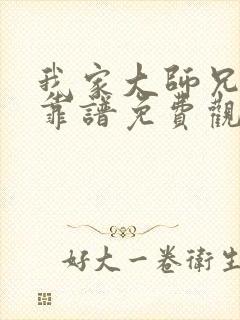 我家大師兄
靠譜免費觀
好大一卷衛生